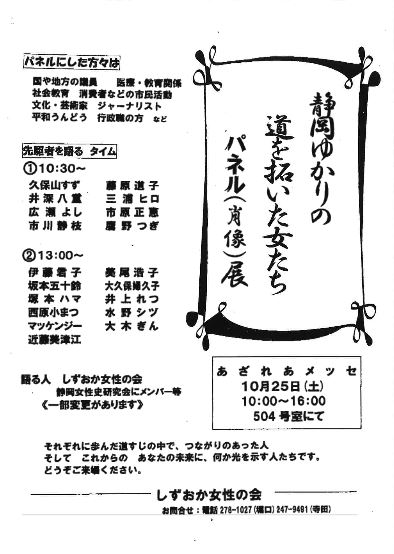 静岡ゆかりの
道を拓いた女たち
パネル(肖像)展
パネルにした方々は
国や地方の議員 医療・教育関係
社会教育 消費者などの市民活動
文化・芸術家 ジャーナリスト
平和うんどう 行政職の方 など
先駆者を語る タイム
①10:30~
久保山すず 藤原道子
井深八重 三浦ヒロ
広瀬よし 市原正恵
市川静枝 鷹野つぎ
②13:00~
伊藤君子 美尾浩子
坂本五十鈴 大久保婦久子
塚本ハマ 井上れつ
西原小まつ 水野シヅ
マッケンジー 大木ぎん
近藤美津江
語る人 しずおか女性の会
静岡女性史研究会にメンバー等
《一部変更があります》
あざれあメッセ
10月25日(土)
10:00~16:00
504号室にて
それぞれに歩んだ道すじの中で、つながりのあった人
そして これからの あなたの未来に、何か光を示す人たちです。
どうぞご来場ください。
しずおか女性の会
お問合せ:電話 278-1027(堀口) 247-9491(寺田)